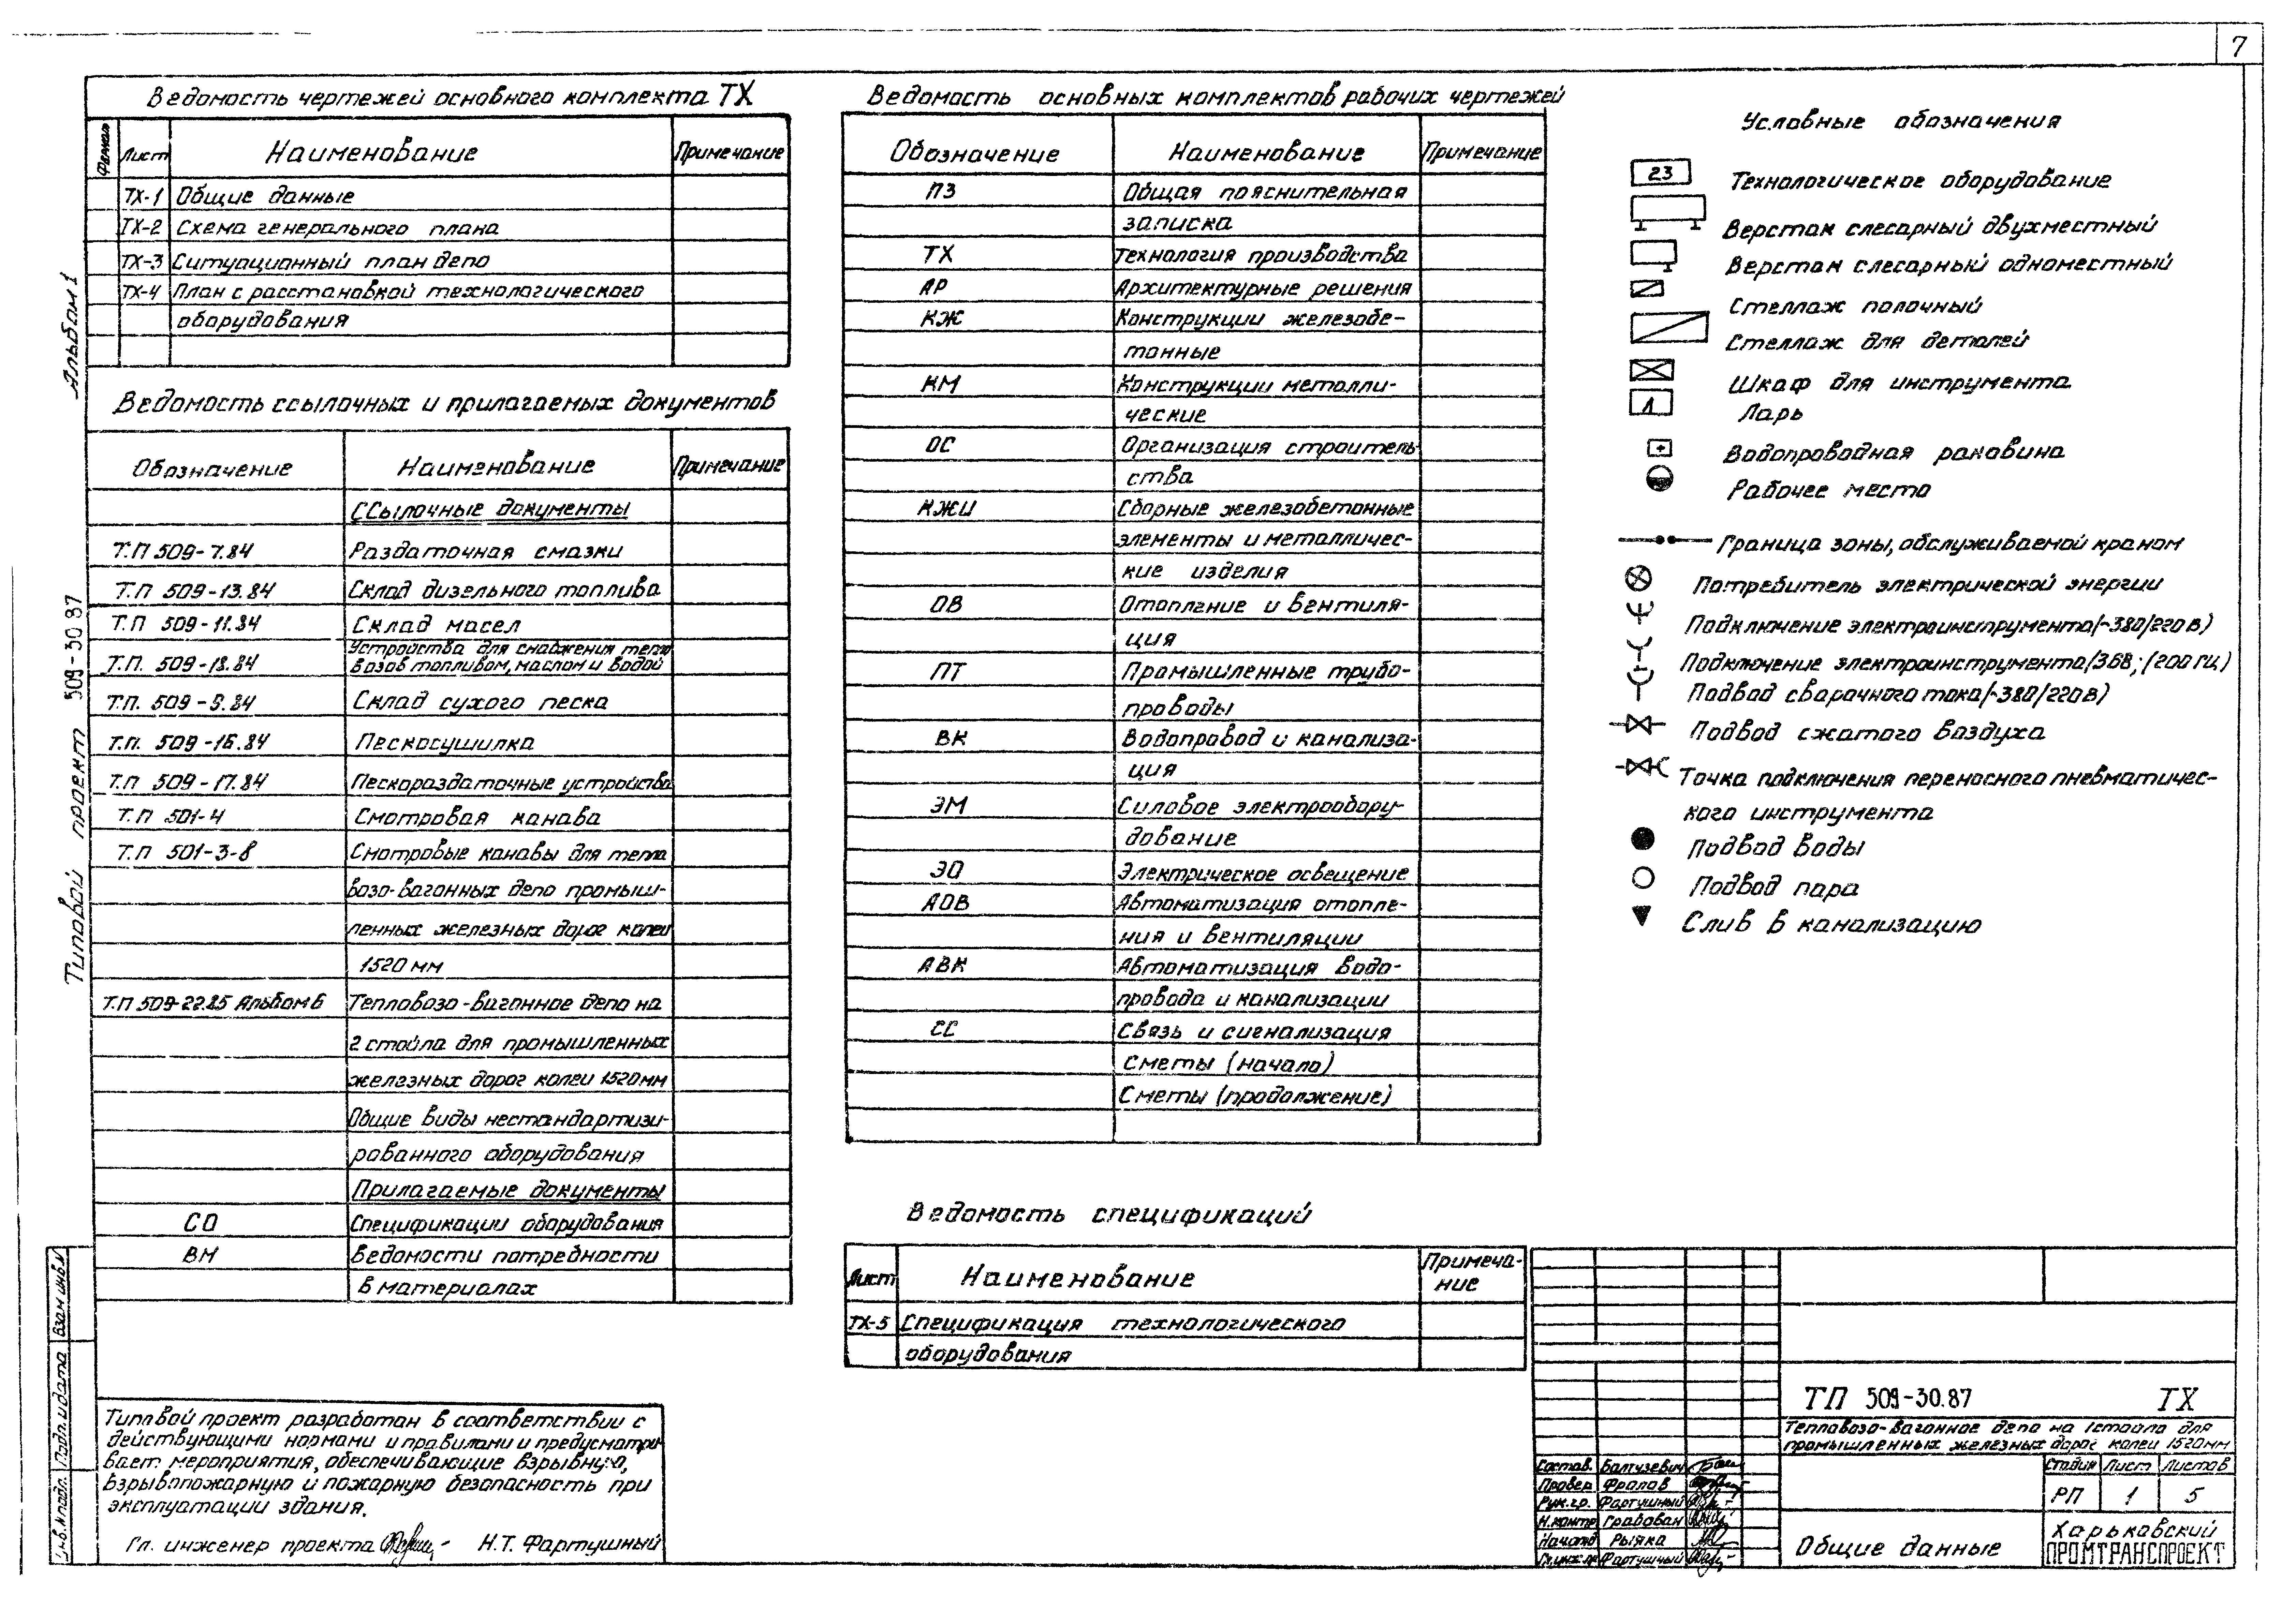 7
Ведомость чертежей основного комплекта ТХ
Формат Лист Наименование Примечание
ТХ-1 Общие данные
ТХ-2 Схема генерального плана
ТХ-3 Ситуационный план депо
ТХ-4 План с расстановкой технологического
оборудования
Ведомость ссылочных и прилагаемых документов
Обозначение Наименование Примечание
Ссылочные документы
Т.П 509-7.84 Раздаточная смазки
Т.П 509-13.84 Склад дизельного топлива
Т.П 509-11.84 Склад масел
Устройства для снабжения тепло
Т.П. 509-18.84 возов топливом, маслом и водой
Т.П. 509-9.84 Склад сухого песка
Т.П. 509-16.84 Пескосушилка
Т.П 509-17.84 Пескораздаточные устройства
Т.П 501-4 Смотровая канава
Т.П 501-3-8 Смотровые канавы для тепло
возо-вагонных депо промыш-
ленных железных дорог колеи
1520 мм
Т.П 509-22.85 Альбом 6 Тепловозо-вагонное депо на
2 стойла для промышленных
железных дорог колеи 1520мм
Общие виды нестандартизи-
рованного оборудования
Прилагаемые документы
СО Спецификации оборудования
ВМ Ведомости потребности
в материалах
Типовой проект разработан в соответствии с
действующими нормами и правилами и предусматри-
вает мероприятия, обеспечивающие взрывную,
взрывопожарную и пожарную безопасность при
эксплуатации здания.
Гл. инженер проекта Н.Т. Фартушный
Ведомость основных комплектов рабочих чертежей
Обозначение Наименование Примечание
ПЗ Общая пояснительная
записка
ТХ Технология производства
АР Архитектурные решения
КЖ Конструкции железобе-
тонные
КМ Конструкции металли-
ческие
ОС Организация строитель-
ства
КЖИ Сборные железобетонные
элементы и металличес-
кие изделия
ОВ Отопление и вентиля-
ция
ПТ Промышленные трубо-
проводы
ВК Водопровод и канализа-
ция
ЭМ Силовое электрообору-
дование
ЭО Электрическое освещение
АОВ Автоматизация отопле-
ния и вентиляции
АВК Автоматизация водо-
провода и канализации
СС Связь и сигнализация
Сметы (начало)
Сметы (продолжение)
Ведомость спецификаций
Лист Наименование Примеча-
ние
ТХ-5 Спецификация технологического
оборудования
Условные обозначения
23 Технологическое оборудование
Верстак слесарный двухместный
Верстак слесарный одноместный
Стеллаж полочный
Стеллаж для деталей
Шкаф для инструмента
Л Ларь
Водопроводная раковина
Рабочее место
Граница зоны, обслуживаемой краном
Потребитель электрической энергии
Подключение электроинструмента (~380/220 в)
Подключение электроинструмента (36В; (200 гц)
Подвод сварочного тока (~380/220 в)
Подвод сжатого воздуха
Точка подключения переносного пневматичес-
кого инструмента
Подвод воды
Подвод пара
Слив в канализацию
ТП 509-30.87 ТХ
Тепловозо-вагонное депо на 1 стойло для
промышленных железных дорог колеи 1520мм
Состав. Балтузевич
Провер Фролов
Рук.гр. Фартушный
Н.контр Грабован
Нач.отд Рыжка
Гл.инж.пр Фартушный
Стадия Лист Листов
РП 1 5
Общие данные
Харьковский
ПРОМТРАНСПРОЕКТ
Альбом 1
Типовой проект 509-30.87
Взам.инв.№
Подп. и дата
Инв.№ подл.